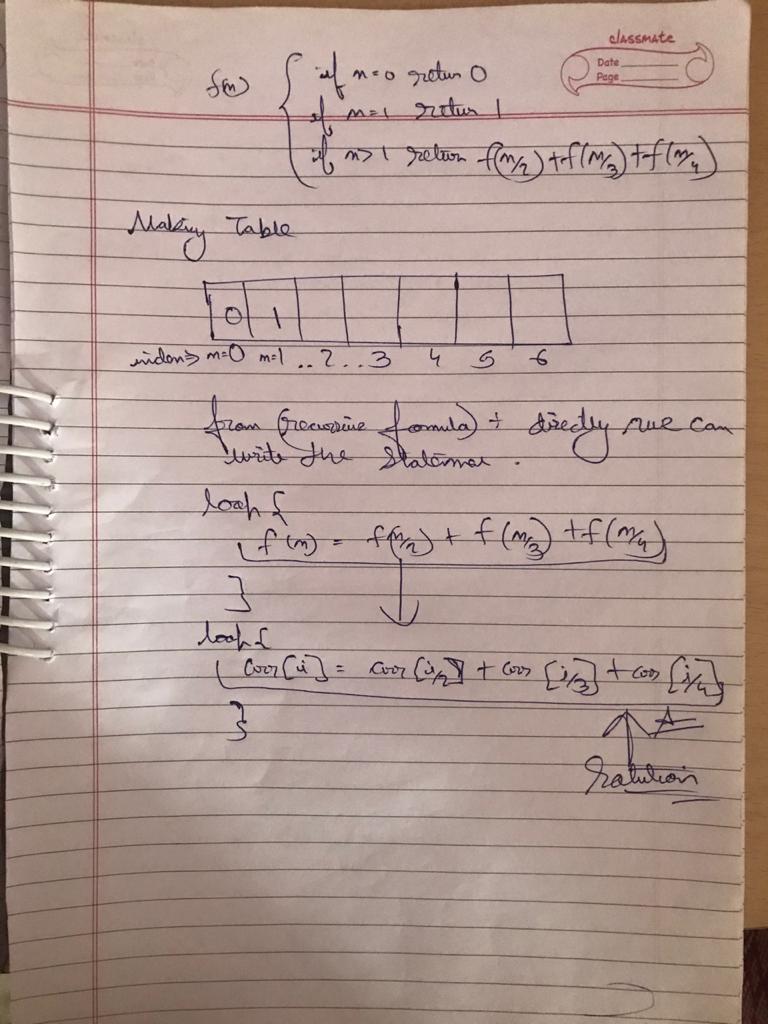 classmate
Date
Page
f(n) { if n=0 return 0
if n=1 return 1
if n>1 return f(n/2)+f(n/3)+f(n/4)
Making Table
0 1
index⇒ n=0 n=1 ..2..3 4 5 6
from (recursive formula) ÷ directly we can
write the
loop {
f(n) = f(n/2) + f(n/3) + f(n/4)
}
loop {
arr[i] = arr[i/2] + arr[i/3] + arr[i/4]
}